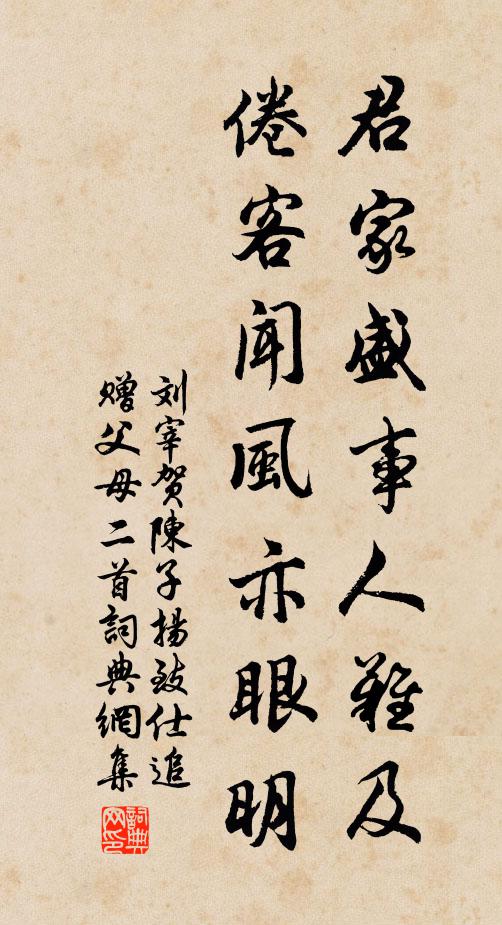 君家盛事人難及
倦客聞風亦眼明
刘宰賀陳子揚致仕追
贈父母二首詞典網集
詞典网印